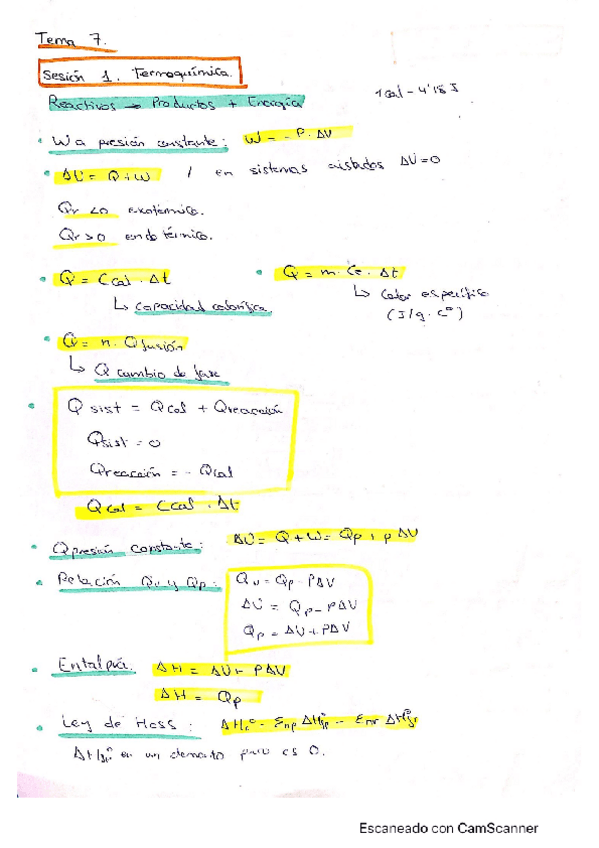 Tema 7.
Sesión 1. Termoquímica.
Reactivos → Productos + Energía
1cal - 4'18 J
• W a presión constante: W = - P · ΔV
• ΔU = Q + W / en sistemas aislados ΔU = 0
Qr < 0 exotérmica.
Qr > 0 endotérmica.
• Q = Ccal · Δt
↳ capacidad calorífica
• Q = m · Ce · Δt
↳ Calor específico
(J/g · Cº)
• Q = n · Qfusión
↳ Q cambio de fase
• Q sist = Qcal + Qreacción
Qsist = 0
Qreacción = - Qcal
Qcal = Ccal · Δt
• Qpresión constante: ΔU = Q + W = Qp + p ΔV
• Relación Qv y Qp: Qv = Qp - PΔV
ΔU = Qp - PΔV
Qp = ΔU + PΔV
• Entalpía. ΔH = ΔU + PΔV
ΔH = Qp
• Ley de Hess: ΔHrº = Σnp ΔHºfp - Σnr ΔHºfr
ΔHºf en un elemento puro es 0.
Escaneado con CamScanner